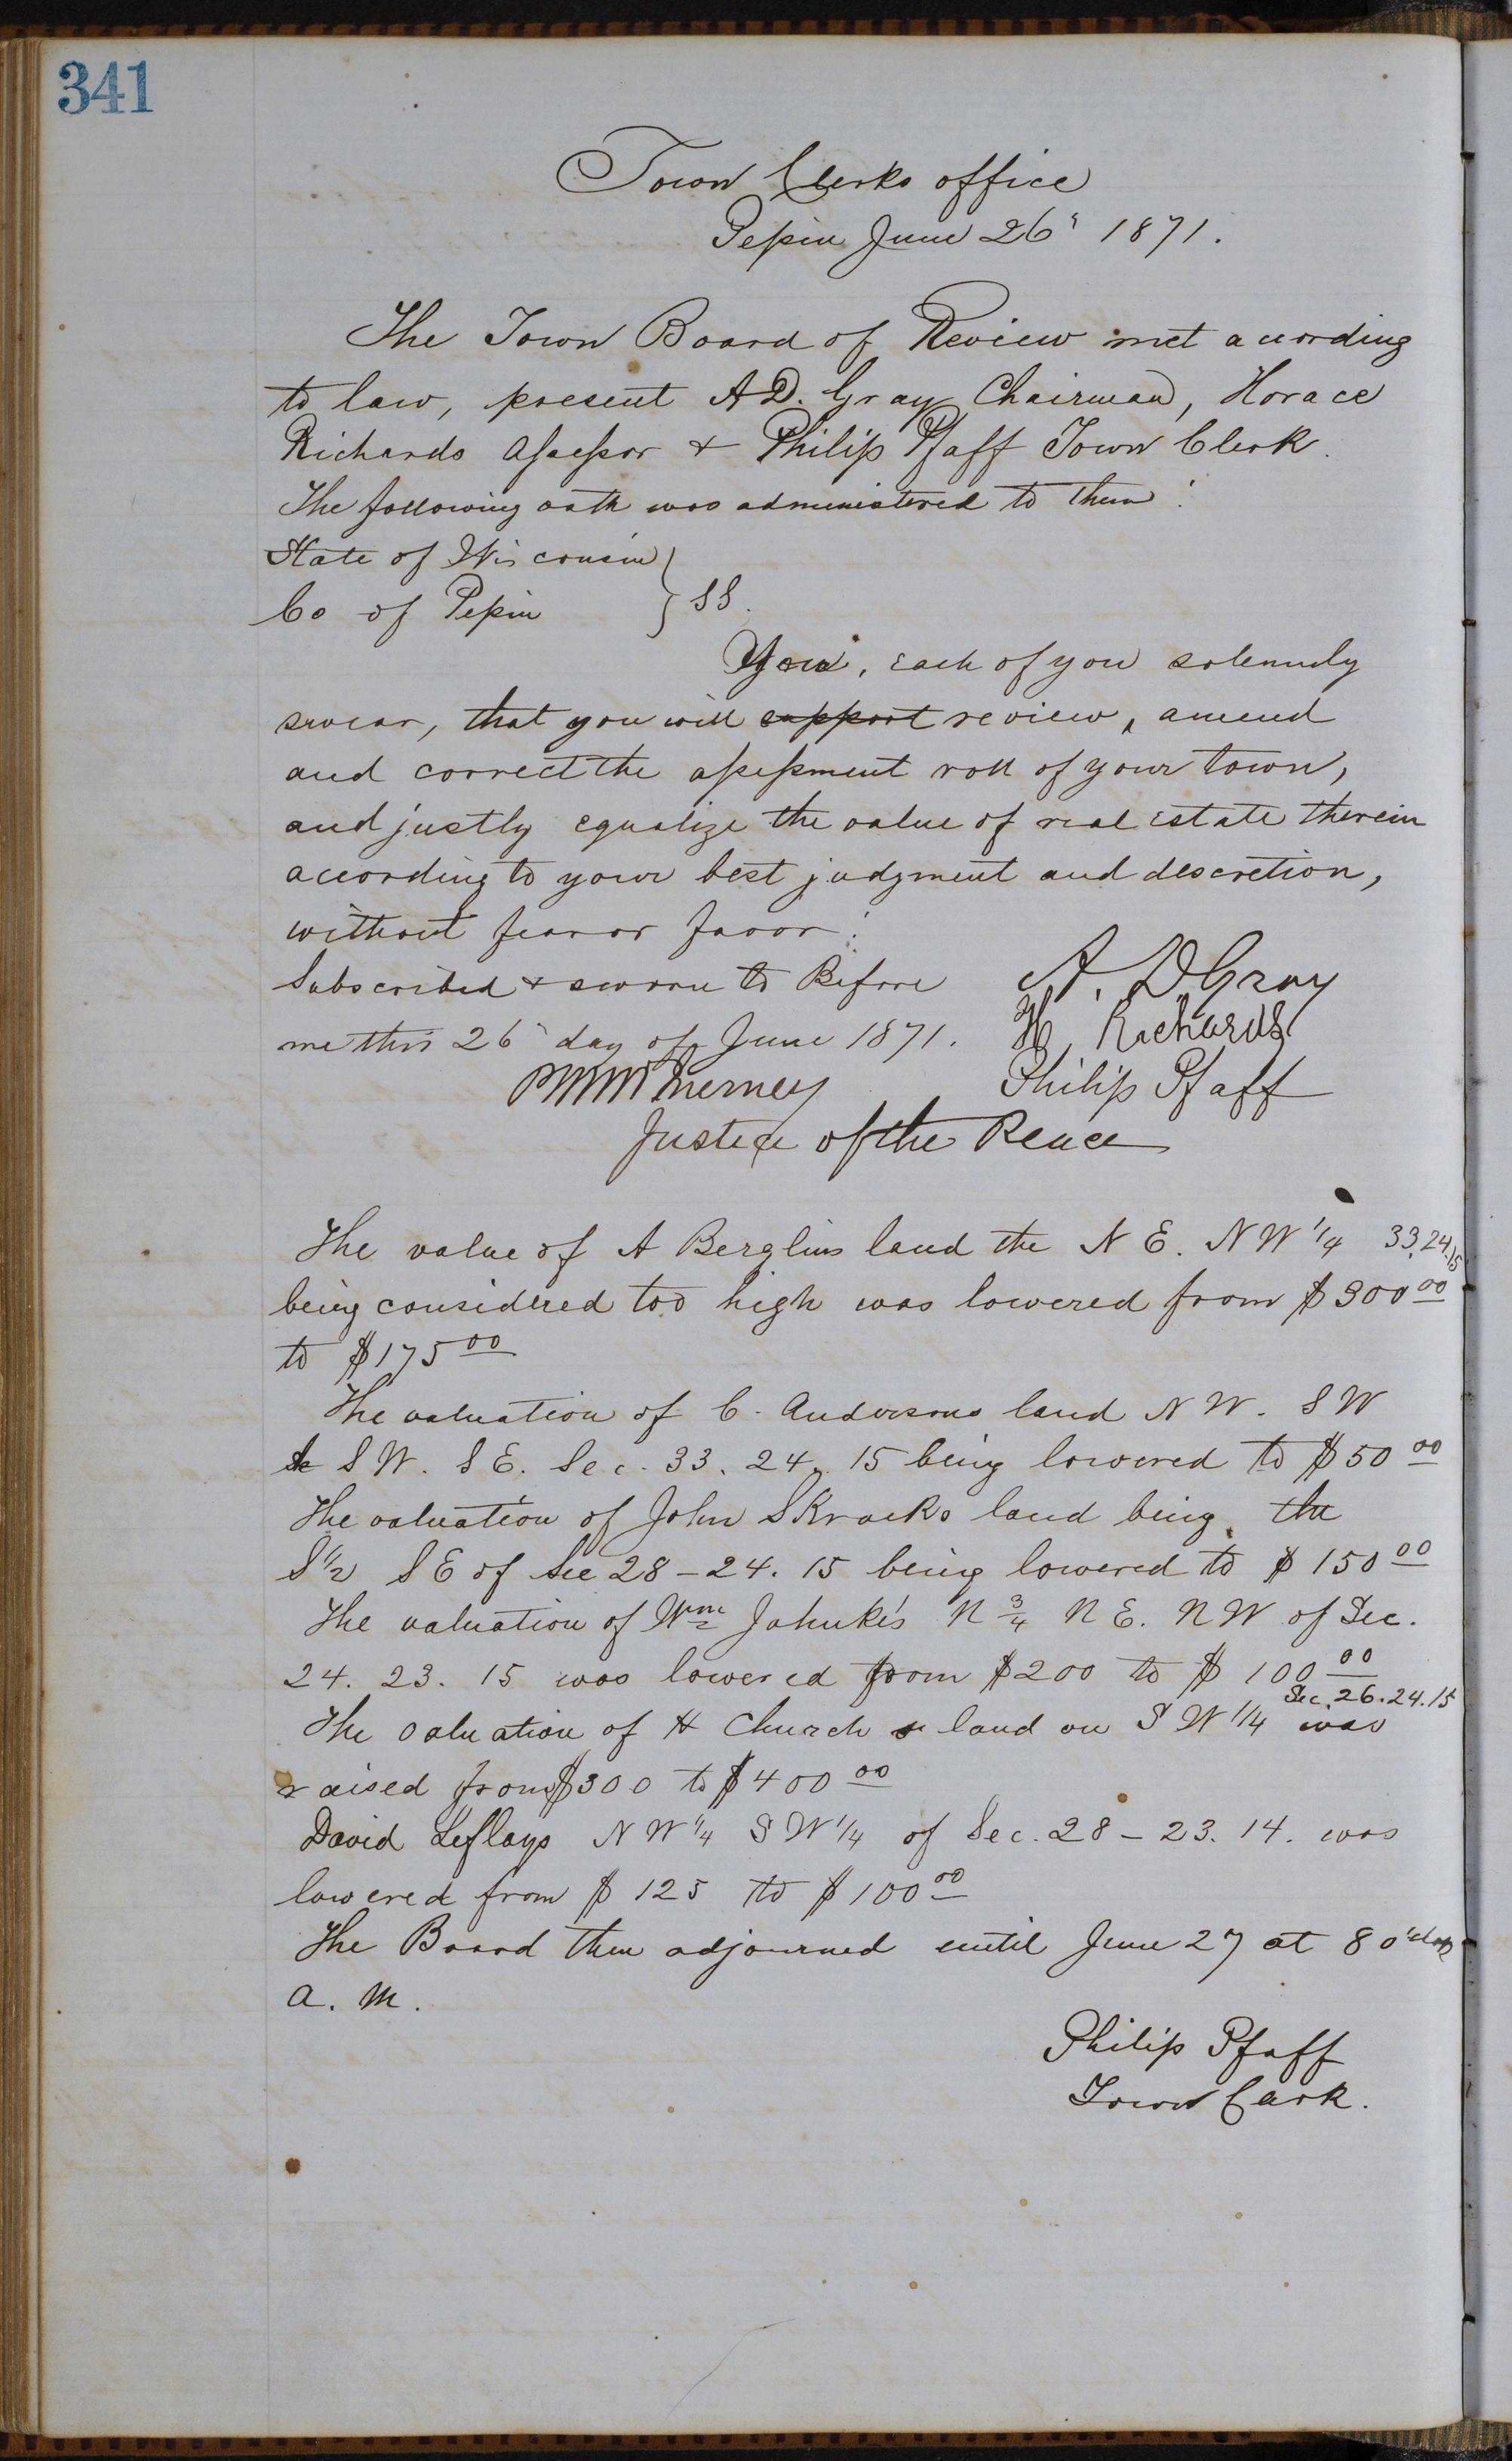 341
Town Clerks office
Pepin June 26" 1871.
The Town Board of Review met acording
to law, present A.D. Gray Chairman, Horace
Richards Assessor + Philip Pfaff Town Clerk.
The following oath was administered to them:
State of Wisconsin }
Co of Pepin } SS.
You, each of you solemnly
swear, that you will support review, amend
and correct the assessment roll of your town,
and justly equalize the value of real estate therein
according to your best judgment and descretion,
without fear or favor.
Subscribed + sworn to Before A. D Gray
me this 26" day of June 1871. H. Richards
Philip Pfaff
Justice of the Peace
The value of A Berglins land the N E. N W 1/4 33.24.15
being considered too high was lowered from $300 00
to $175 00
The valuation of C. Andersons land N W. S W
& S W. S E. Sec. 33. 24. 15 being lowered to $50 00
The valuation of John Skrocks land being the
S 1/2 S E of Sec 28 - 24. 15 being lowered to $150 00
The valuation of Wm Jahnke's N 3/4 N E. N W of Sec.
24. 23. 15 was lowered from $200 to $100 00
Sec. 26. 24. 15
The valuation of H Church s land on S W 1/4 was
raised from $300 to $400 00
David Leflays N W 1/4 S W 1/4 of Sec. 28 - 23. 14. was
lowered from $125 to $100 00
The Board then adjourned until June 27 at 8 o'clock
a. m.
Philip Pfaff
Town Clerk.